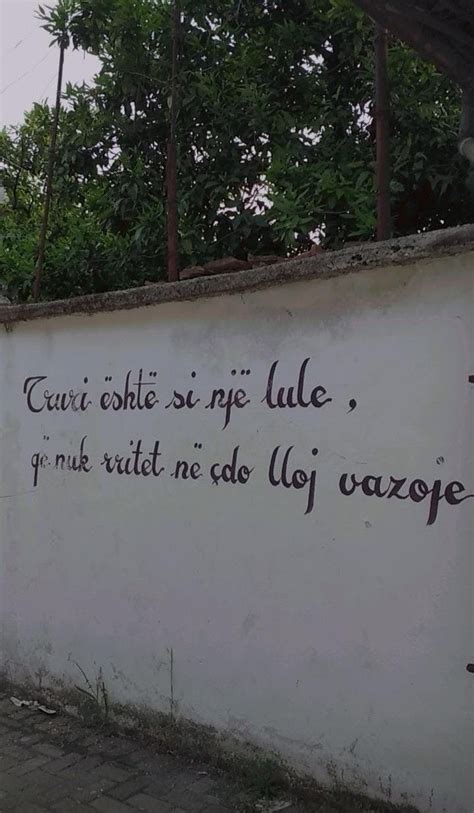 Truri është si një lule,
që nuk rritet në çdo lloj vazoje